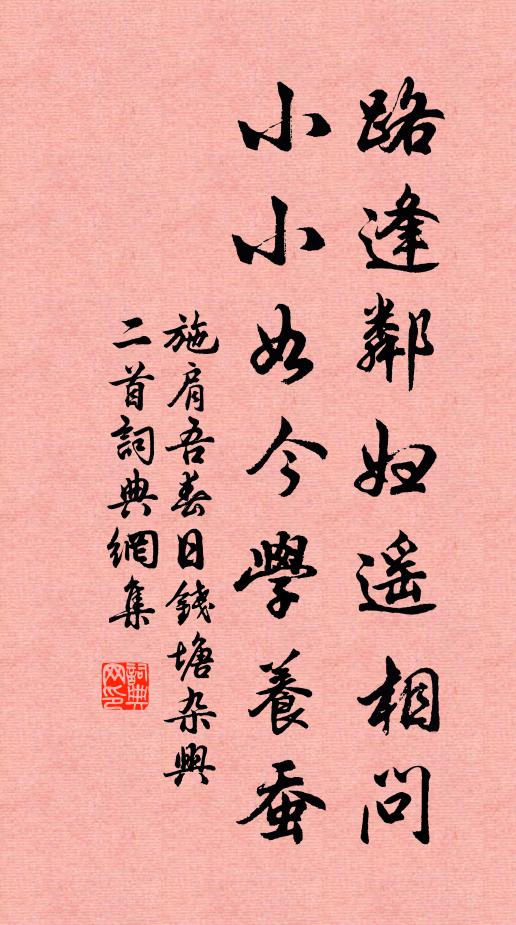 路逢鄰妇遥相问
小小如今學養蚕
施肩吾春日錢塘杂興
二首詞典網集
詞典网印